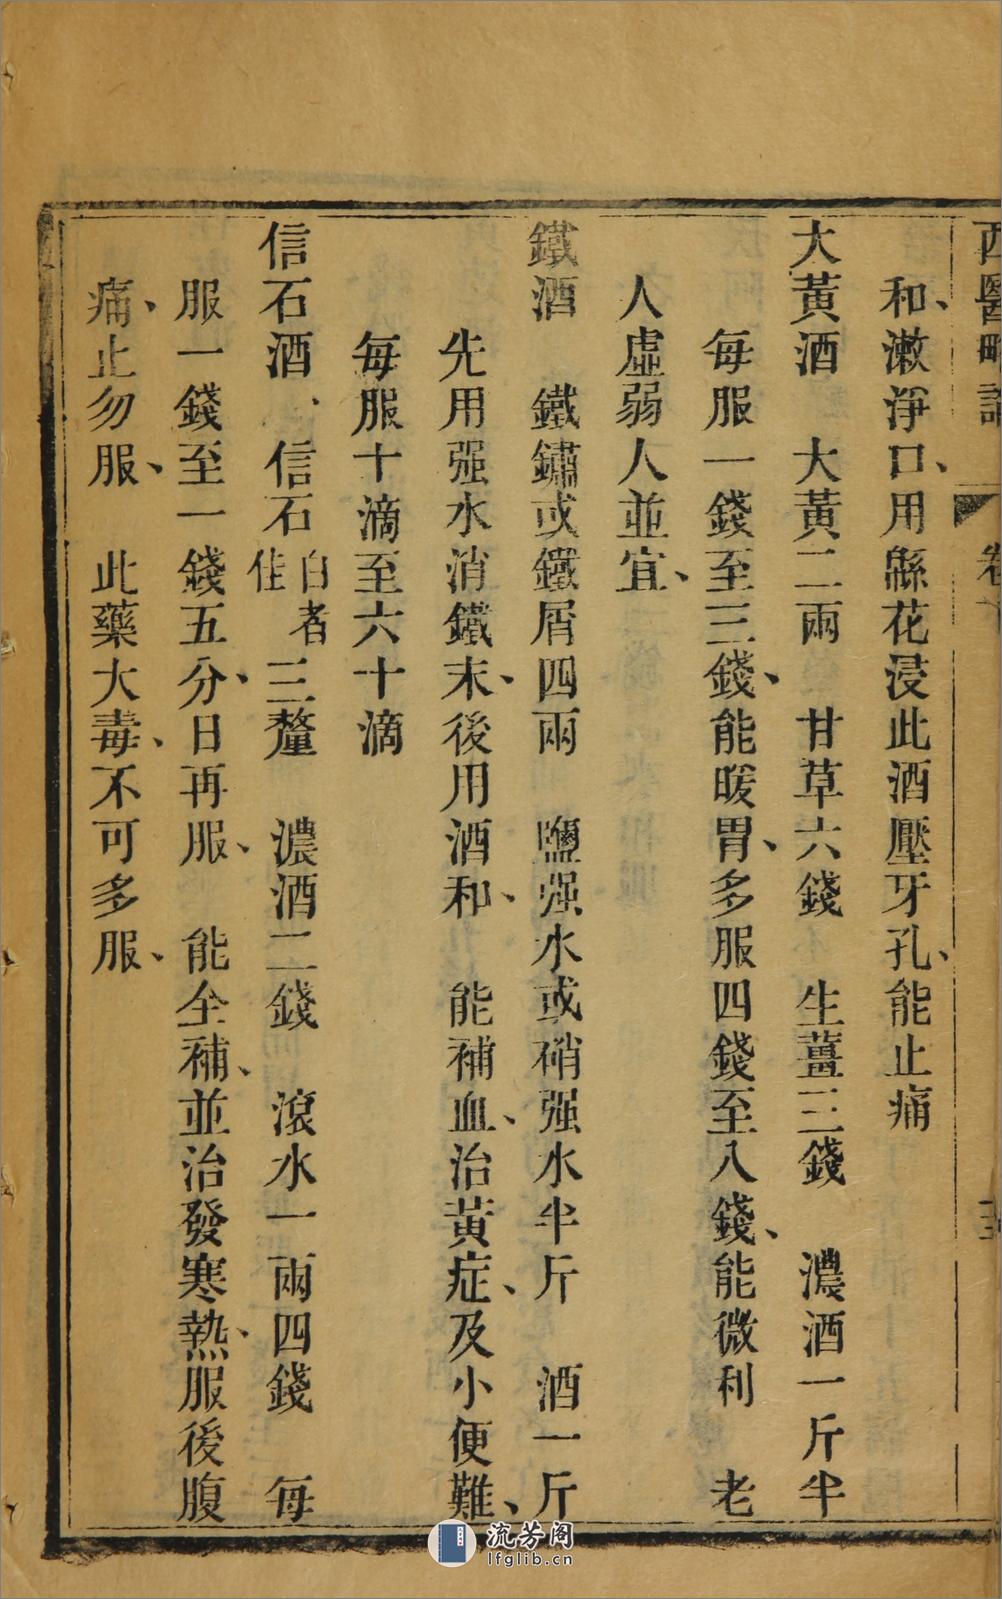 西醫略
和、漱淨口、用緜花浸此酒壓牙孔、能止痛
大黃酒　大黃二兩　甘草六錢　生薑三錢　濃酒一斤半
每服一錢至三錢、能暖胃、多服四錢至八錢、能微利　老
人虛弱人並宜、
鐵酒　鐵鏽或鐵屑四兩　鹽强水或硝强水半斤　酒一斤
先用强水消鐵末、後用酒和、能補血、治黃症、及小便難、
每服十滴至六十滴
信石酒、信石白者佳三釐　濃酒二錢　滾水一兩四錢　每
服一錢至一錢五分、日再服、能全補、並治發寒熱、服後腹
痛、止勿服、此藥大毒、不可多服、
流芳阁
lfglib.cn